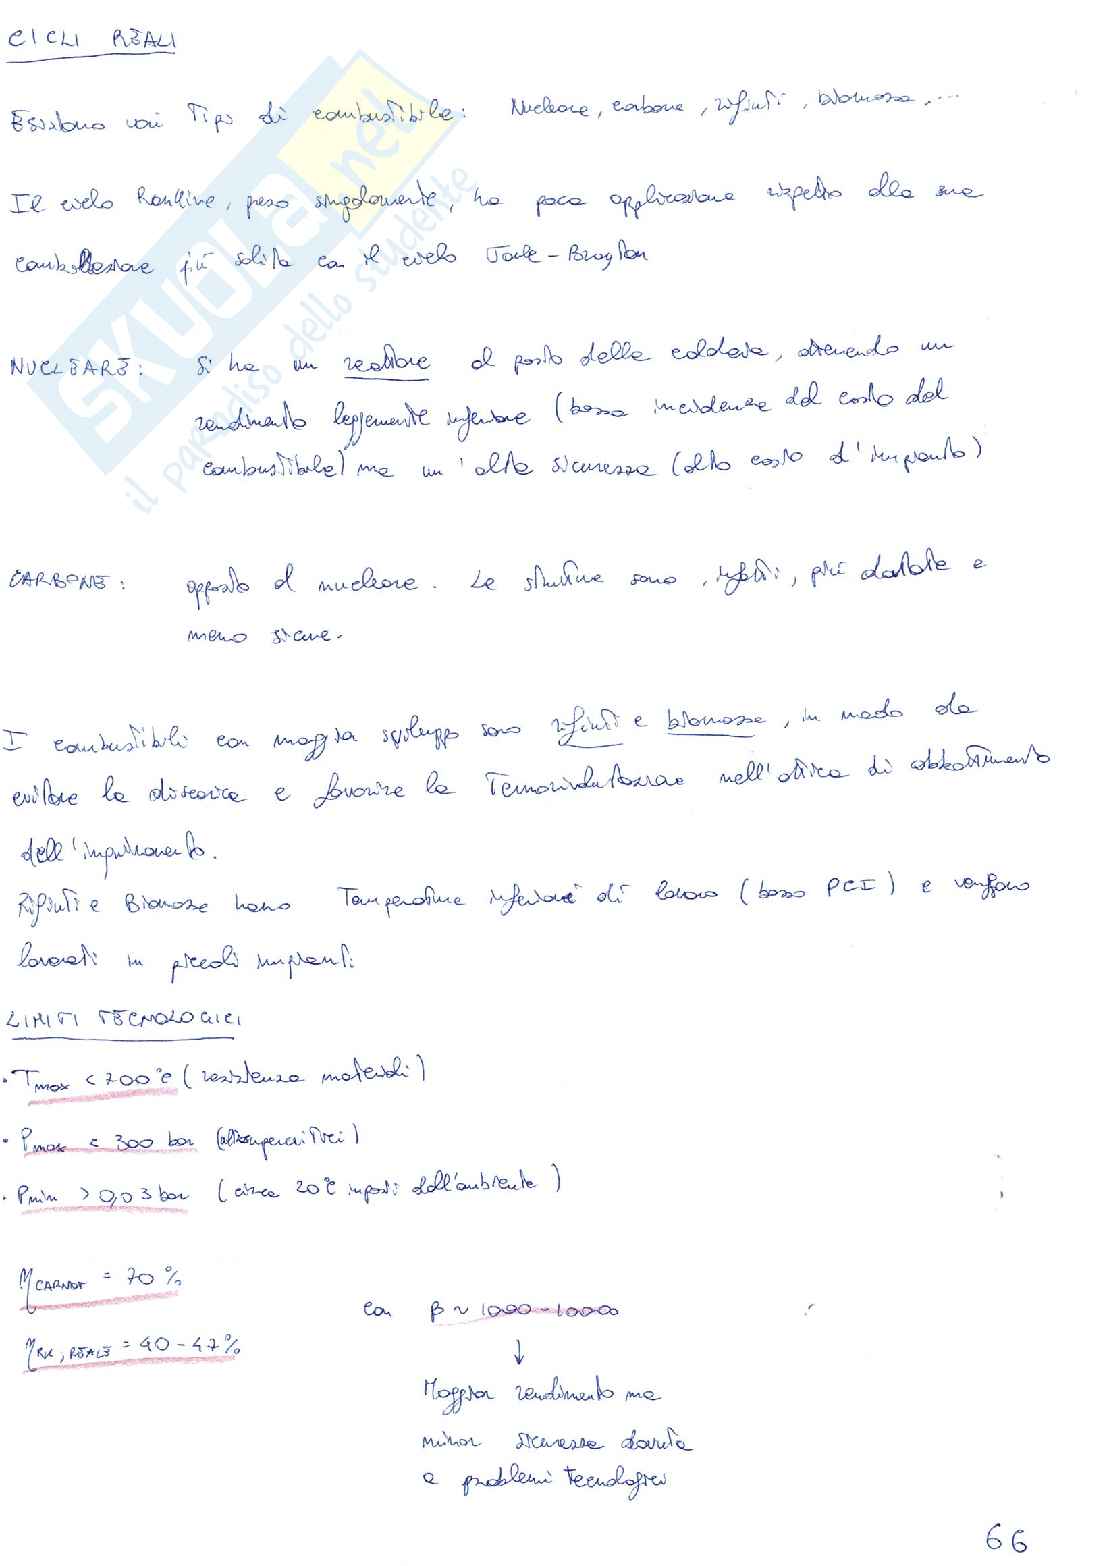 CICLI REALI
Esistono vari Tipi di combustibile: Nucleare, carbone, rifiuti, biomassa,...
Il ciclo Rankine, preso singolarmente, ha poca applicazione rispetto alla sua
combinazione più solita con il ciclo Joule-Brayton
NUCLEARE: Si ha un reattore al posto della caldaia, ottenendo un
rendimento leggermente inferiore (bassa incidenza del costo del
combustibile) ma un'alta sicurezza (alto costo d'impianto)
CARBONE: opposto al nucleare. Le strutture sono, infatti, più datate e
meno sicure.
I combustibili con maggior sviluppo sono rifiuti e biomasse, in modo da
evitare la discarica e favorire la Termovalutazione nell'ottica di abbattimento
dell'inquinamento.
Rifiuti e Biomasse hanno Temperature inferiori di lavoro (basso PCI) e vengono
lavorati in piccoli impianti
LIMITI TECNOLOGICI
• Tmax < 700°C (resistenza materiali)
• Pmax < 300 bar (ultrasupercritici)
• Pmin > 0,03 bar (circa 20°C imposti dall'ambiente)
ηCARNOT = 70%
con β ~ 1000-10000
ηRK, REALE = 40-47%
↓
Maggior rendimento ma
minor sicurezza dovuta
a problemi tecnologici
66
SKUOLA.net
il paradiso dello studente